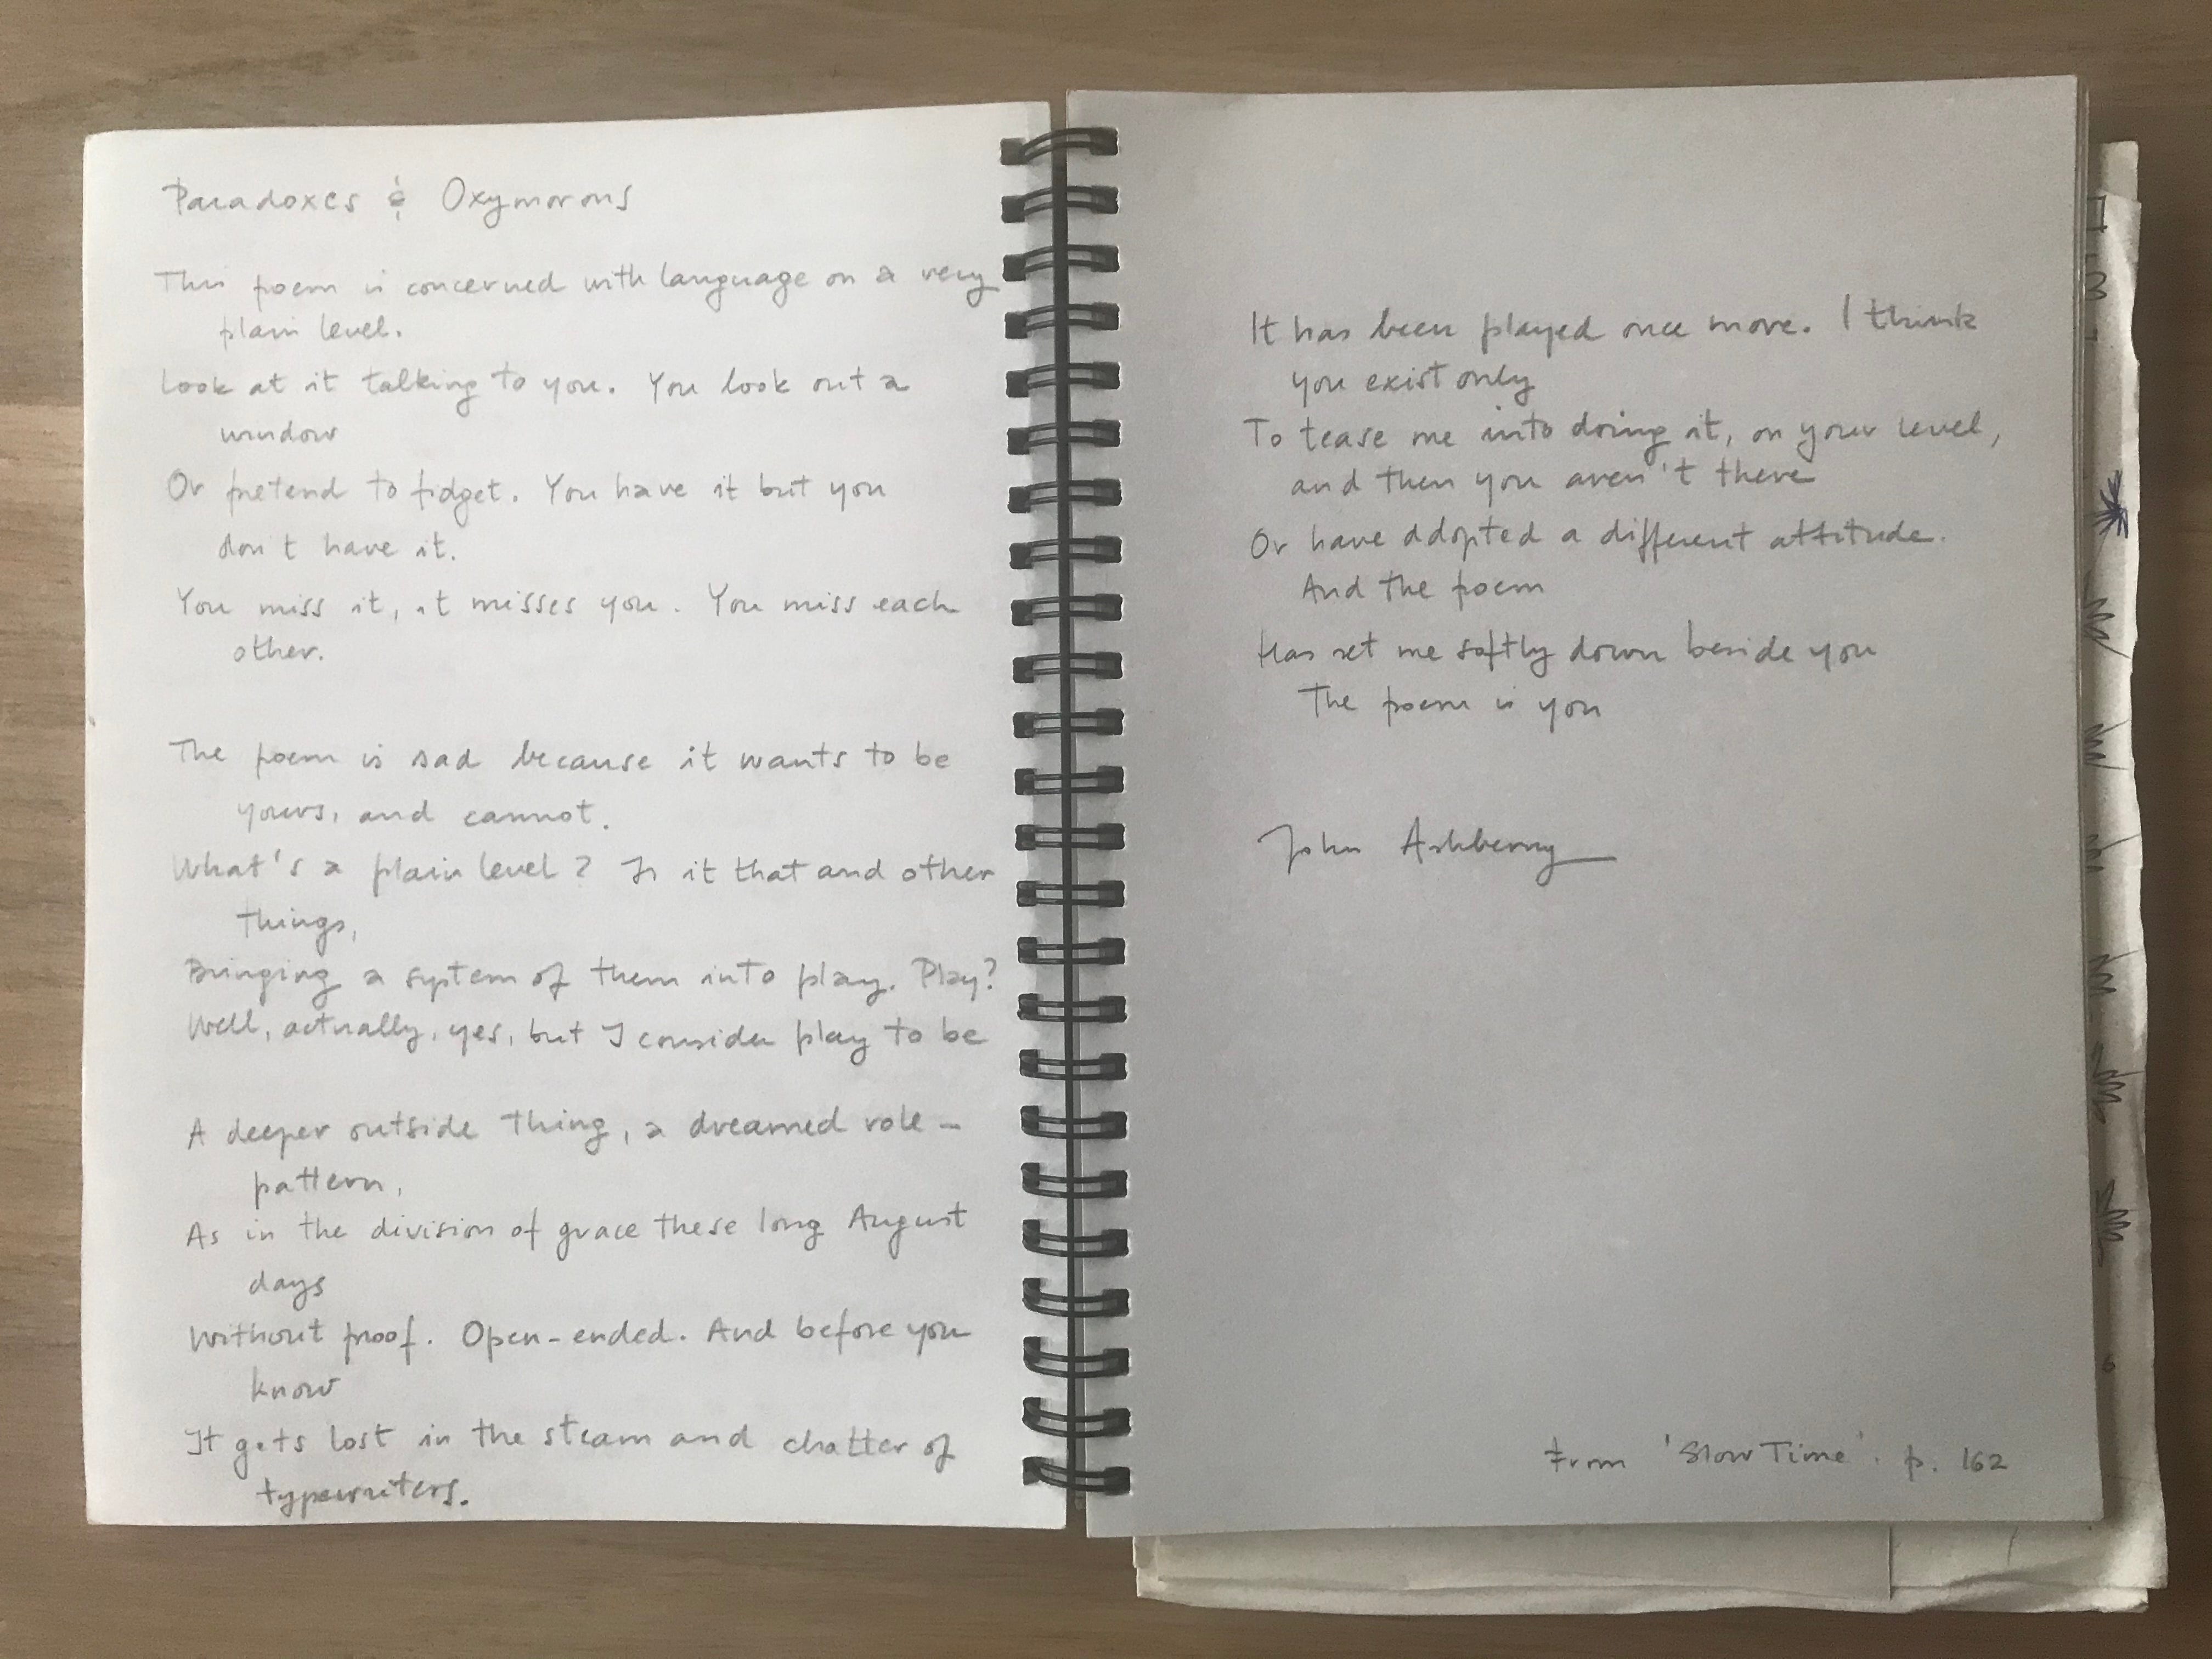 Paradoxes & Oxymorons
This poem is concerned with language on a very
plain level.
Look at it talking to you. You look out a
window
Or pretend to fidget. You have it but you
don't have it.
You miss it, it misses you. You miss each
other.
The poem is sad because it wants to be
yours, and cannot.
What's a plain level? Is it that and other
things,
Bringing a system of them into play. Play?
Well, actually, yes, but I consider play to be
A deeper outside thing, a dreamed role-
pattern,
As in the division of grace these long August
days
Without proof. Open-ended. And before you
know
It gets lost in the steam and chatter of
typewriters.
It has been played once more. I think
you exist only
To tease me into doing it, on your level,
and then you aren't there
Or have adopted a different attitude.
And the poem
Has set me softly down beside you
The poem is you
John Ashberry
From 'Slow Time'. p. 162